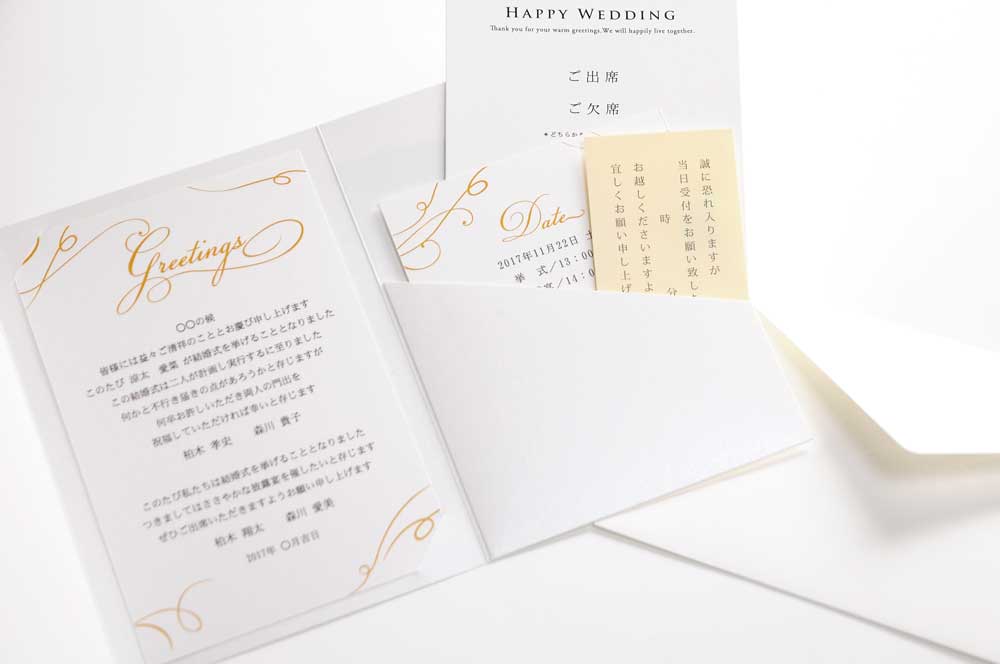 Greetings
〇〇の候
皆様には益々ご清祥のこととお慶び申し上げます
このたび 涼太 愛菜 が結婚式を挙げることとなりました
この結婚式は二人が計画し実行するに至りました
何かと不行き届きの点があろうかと存じますが
何卒お許しいただき両人の門出を
祝福していただければ幸いと存じます
柏木 孝史 森川 貴子
このたび私たちは結婚式を挙げることとなりました
つきましてはささやかな披露宴を催したいと存じます
ぜひご出席いただきますようお願い申し上げます
柏木 翔太 森川 愛美
2017年 〇月吉日
HAPPY WEDDING
Thank you for your warm greetings.We will happily live together.
ご出席
ご欠席
*どちらか
Date
2017年11月22日
挙 式/13:00
/14:
誠に恐れ入りますが
当日受付をお願い致し
時 分
お越しくださいますよ
宜しくお願い申し上げ